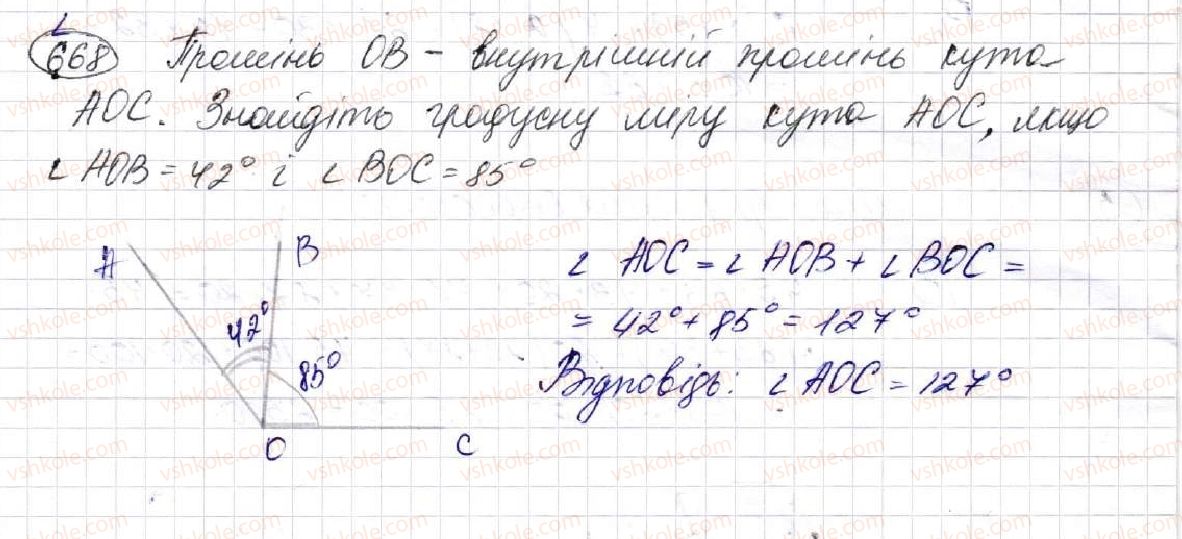 668 Промінь OB - внутрішній промінь кута
AOC. Знайдіть градусну міру кута AOC, якщо
∠ AOB = 42° і ∠ BOC = 85°
A
B
42°
85°
O
C
∠ AOC = ∠ AOB + ∠ BOC =
= 42° + 85° = 127°
Відповідь: ∠ AOC = 127°
vshkole.com